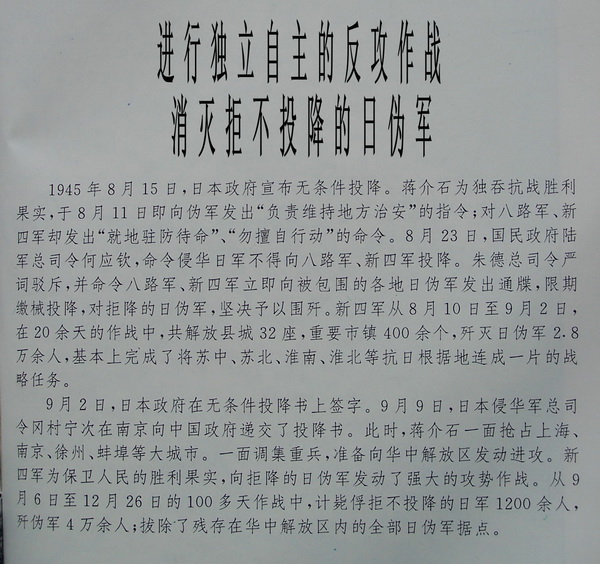 进行独立自主的反攻作战
消灭拒不投降的日伪军
1945年8月15日,日本政府宣布无条件投降。蒋介石为独吞抗战胜利
果实,于8月11日即向伪军发出“负责维持地方治安”的指令;对八路军、新
四军却发出“就地驻防待命”、“勿擅自行动”的命令。8月23日,国民政府陆
军总司令何应钦,命令侵华日军不得向八路军、新四军投降。朱德总司令严
词驳斥,并命令八路军、新四军立即向被包围的各地日伪军发出通牒,限期
缴械投降,对拒降的日伪军,坚决予以围歼。新四军从8月10日至9月2日,
在20余天的作战中,共解放县城32座,重要市镇400余个,歼灭日伪军2.8
万余人,基本上完成了将苏中、苏北、淮南、淮北等抗日根据地连成一片的战
略任务。
9月2日,日本政府在无条件投降书上签字。9月9日,日本侵华军总司
令冈村宁次在南京向中国政府递交了投降书。此时,蒋介石一面抢占上海、
南京、徐州、蚌埠等大城市。一面调集重兵,准备向华中解放区发动进攻。新
四军为保卫人民的胜利果实,向拒降的日伪军发动了强大的攻势作战。从9
月6日至12月26日的100多天作战中,计毙俘拒不投降的日军1200余人,
歼伪军4万余人;拔除了残存在华中解放区内的全部日伪军据点。